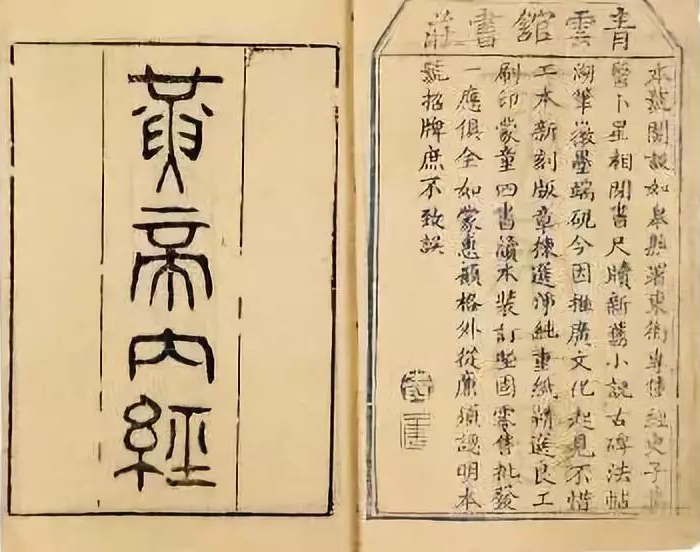 青雲館書莊
本號開設如皋縣署東街專售經史子集
醫卜星相閒書尺牘新舊小說古碑法帖
湖筆徽墨端硯今因推廣文化起見不惜
工本新刻版章揀選淨純重紙精選良工
刷印蒙童四書讀本裝訂堅固零售批發
一應俱全如蒙惠顧格外從廉須認明本
號招牌庶不致誤
黃帝內經